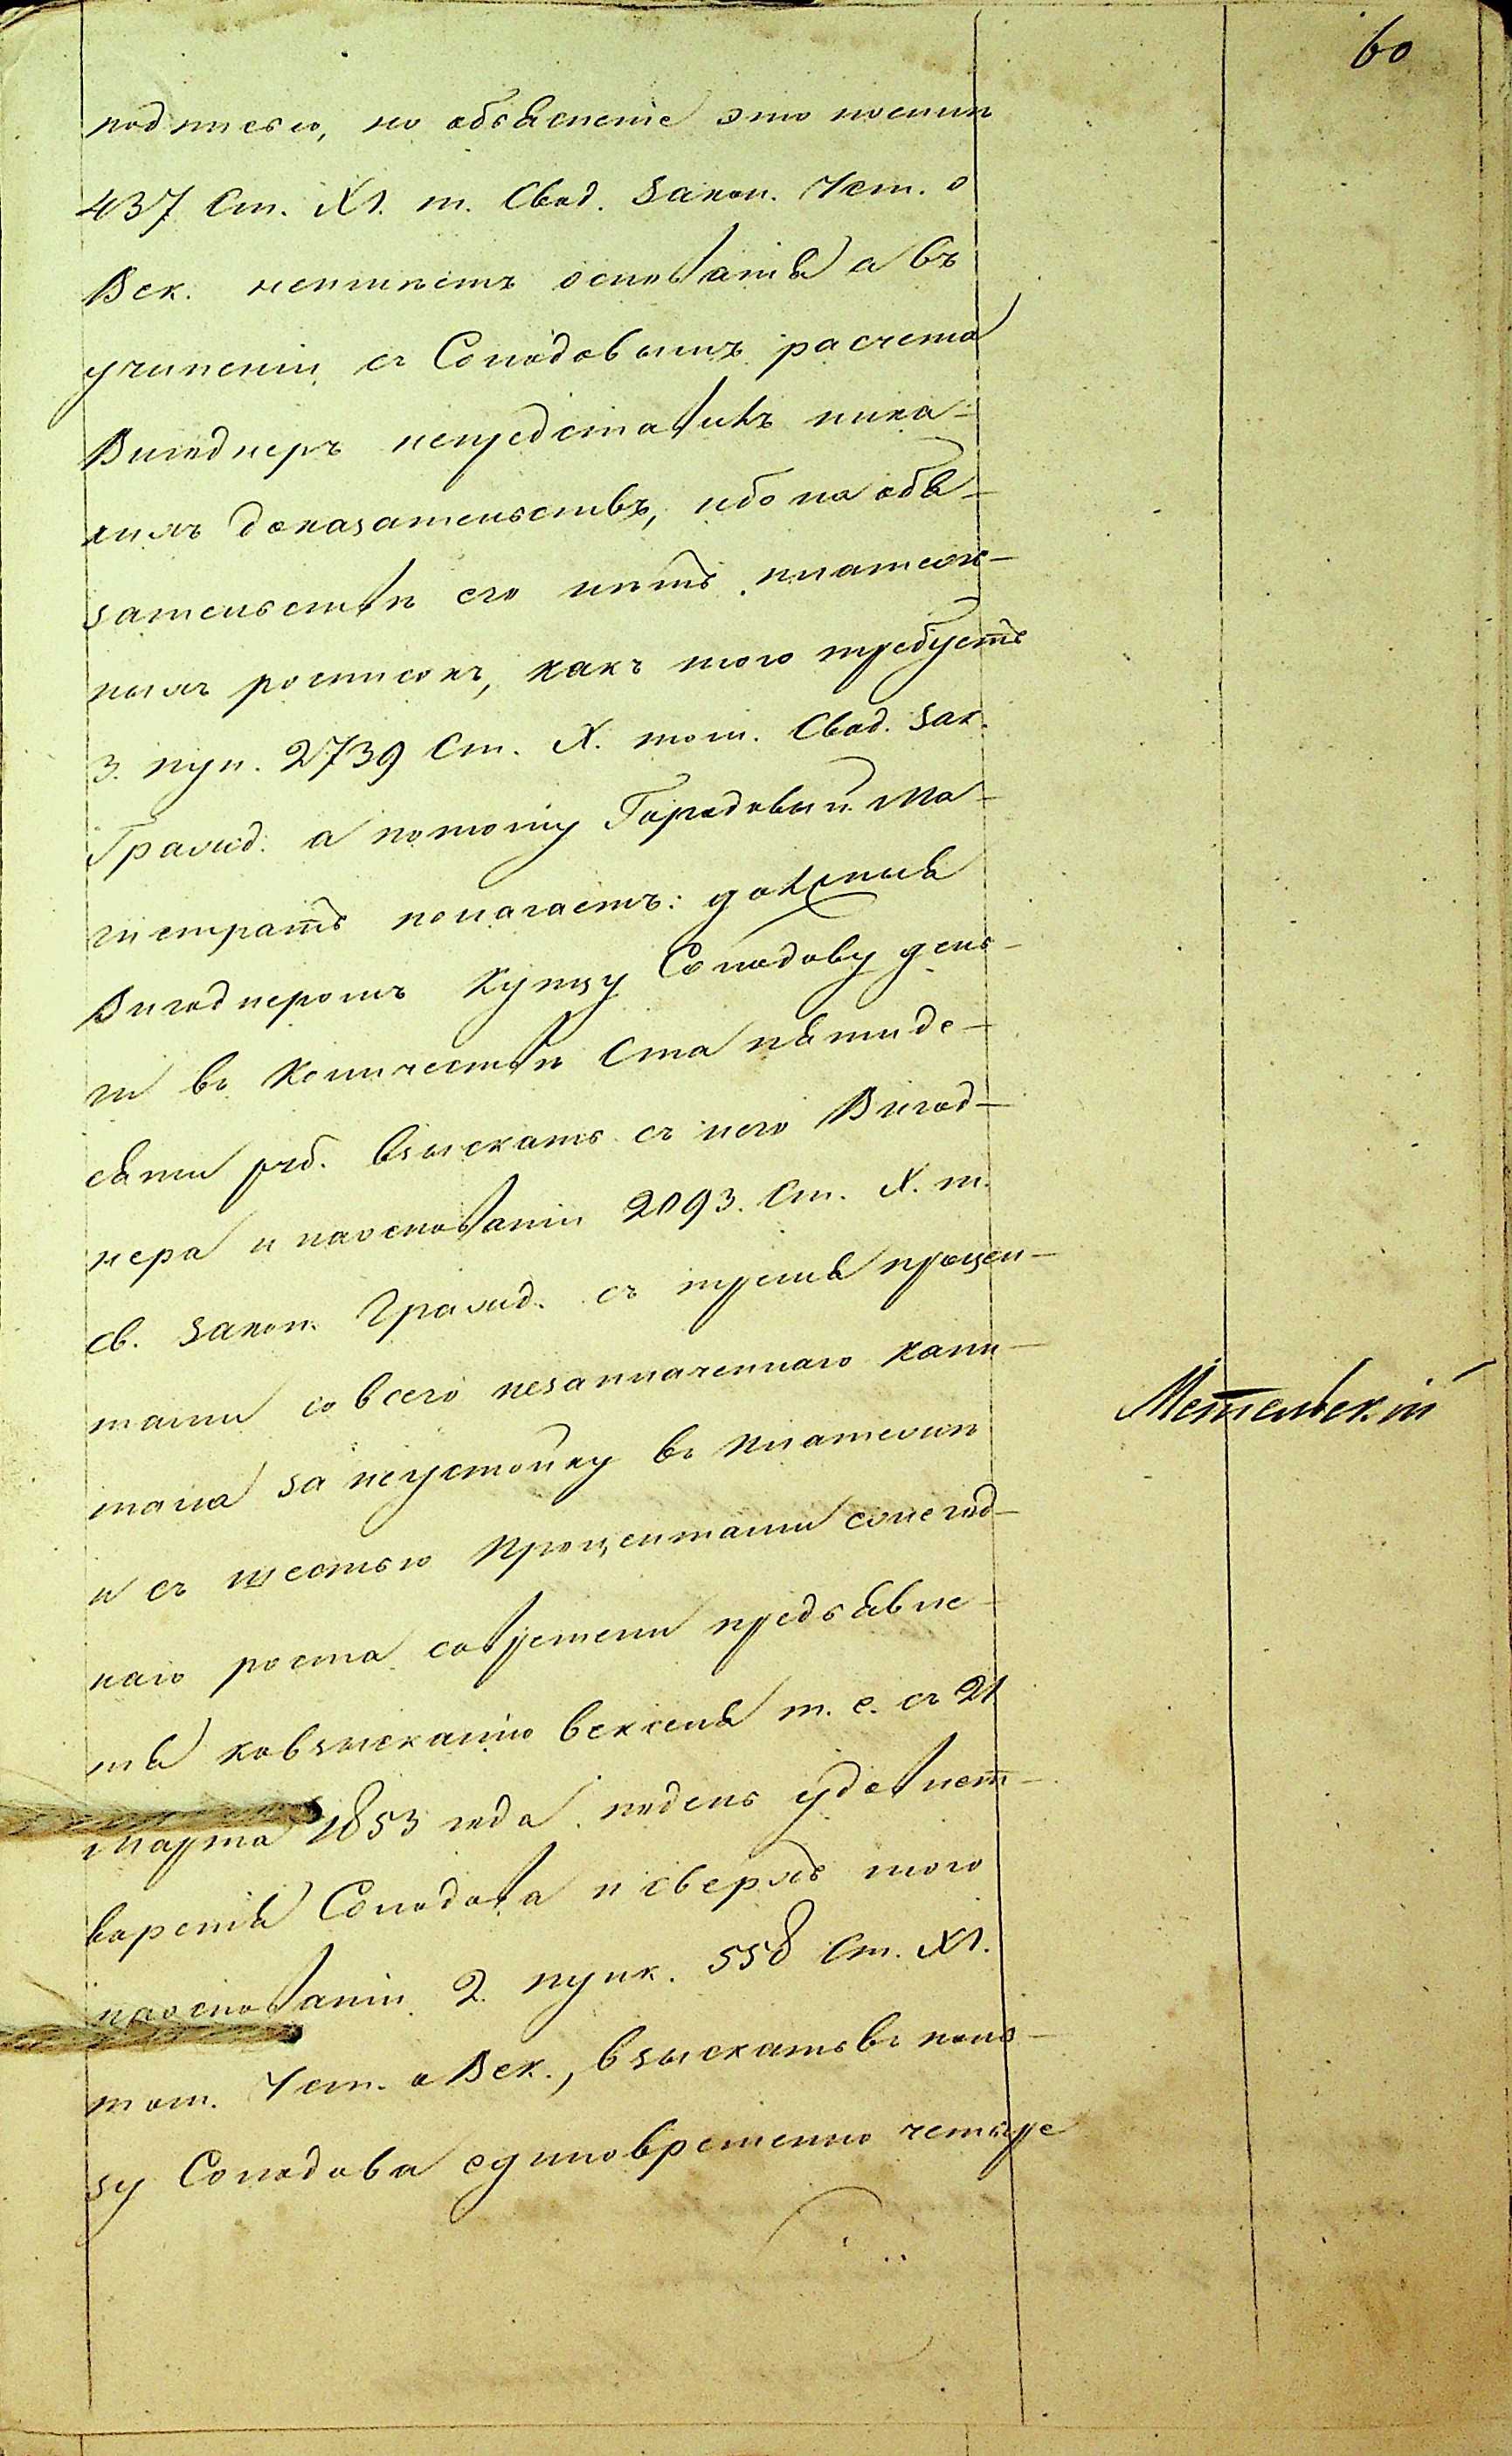 60
подписью, но объясненіе это посилѣ
437 Ст. XI. т. Свод. Закон. Уст. о
Век. неимѣетъ основанія а въ
учиненіи съ Солодовымъ расчета
Вигднеръ непредставилъ ника-
кихъ доказательствъ, ибо на обя-
зательствѣ его нѣтъ платеж-
ныхъ росписокъ, какъ того требуетъ
3. пун. 2739 Ст. X. том. Свод. Зак.
Гражд. а потому Городовый Ма-
гистратъ полагаетъ: должныя
Вигоднеромъ Купцу Солодову день-
ги въ Количествѣ Ста пятиде-
сяти руб. взыскать съ него Вигод-
нера и наоснованіи 2093. Ст. X. т.
Св. Закон. Гражд. съ тремя процен-
тами со всего незаплаченнаго капи-
тала за неустойку въ платежѣ
и съ шестью Процентами ежегод-
наго роста современи предъявле-
нія ковзысканію векселя т. е. съ 21
Марта 1853 года поденъ удовлет-
воренія Солодова и сверхъ того
наоснованіи 2. пунк. 558 Ст. XI.
том. Уст. о Век., взыскать въ поль-
зу Солодова единовременно четыре
Метельскій